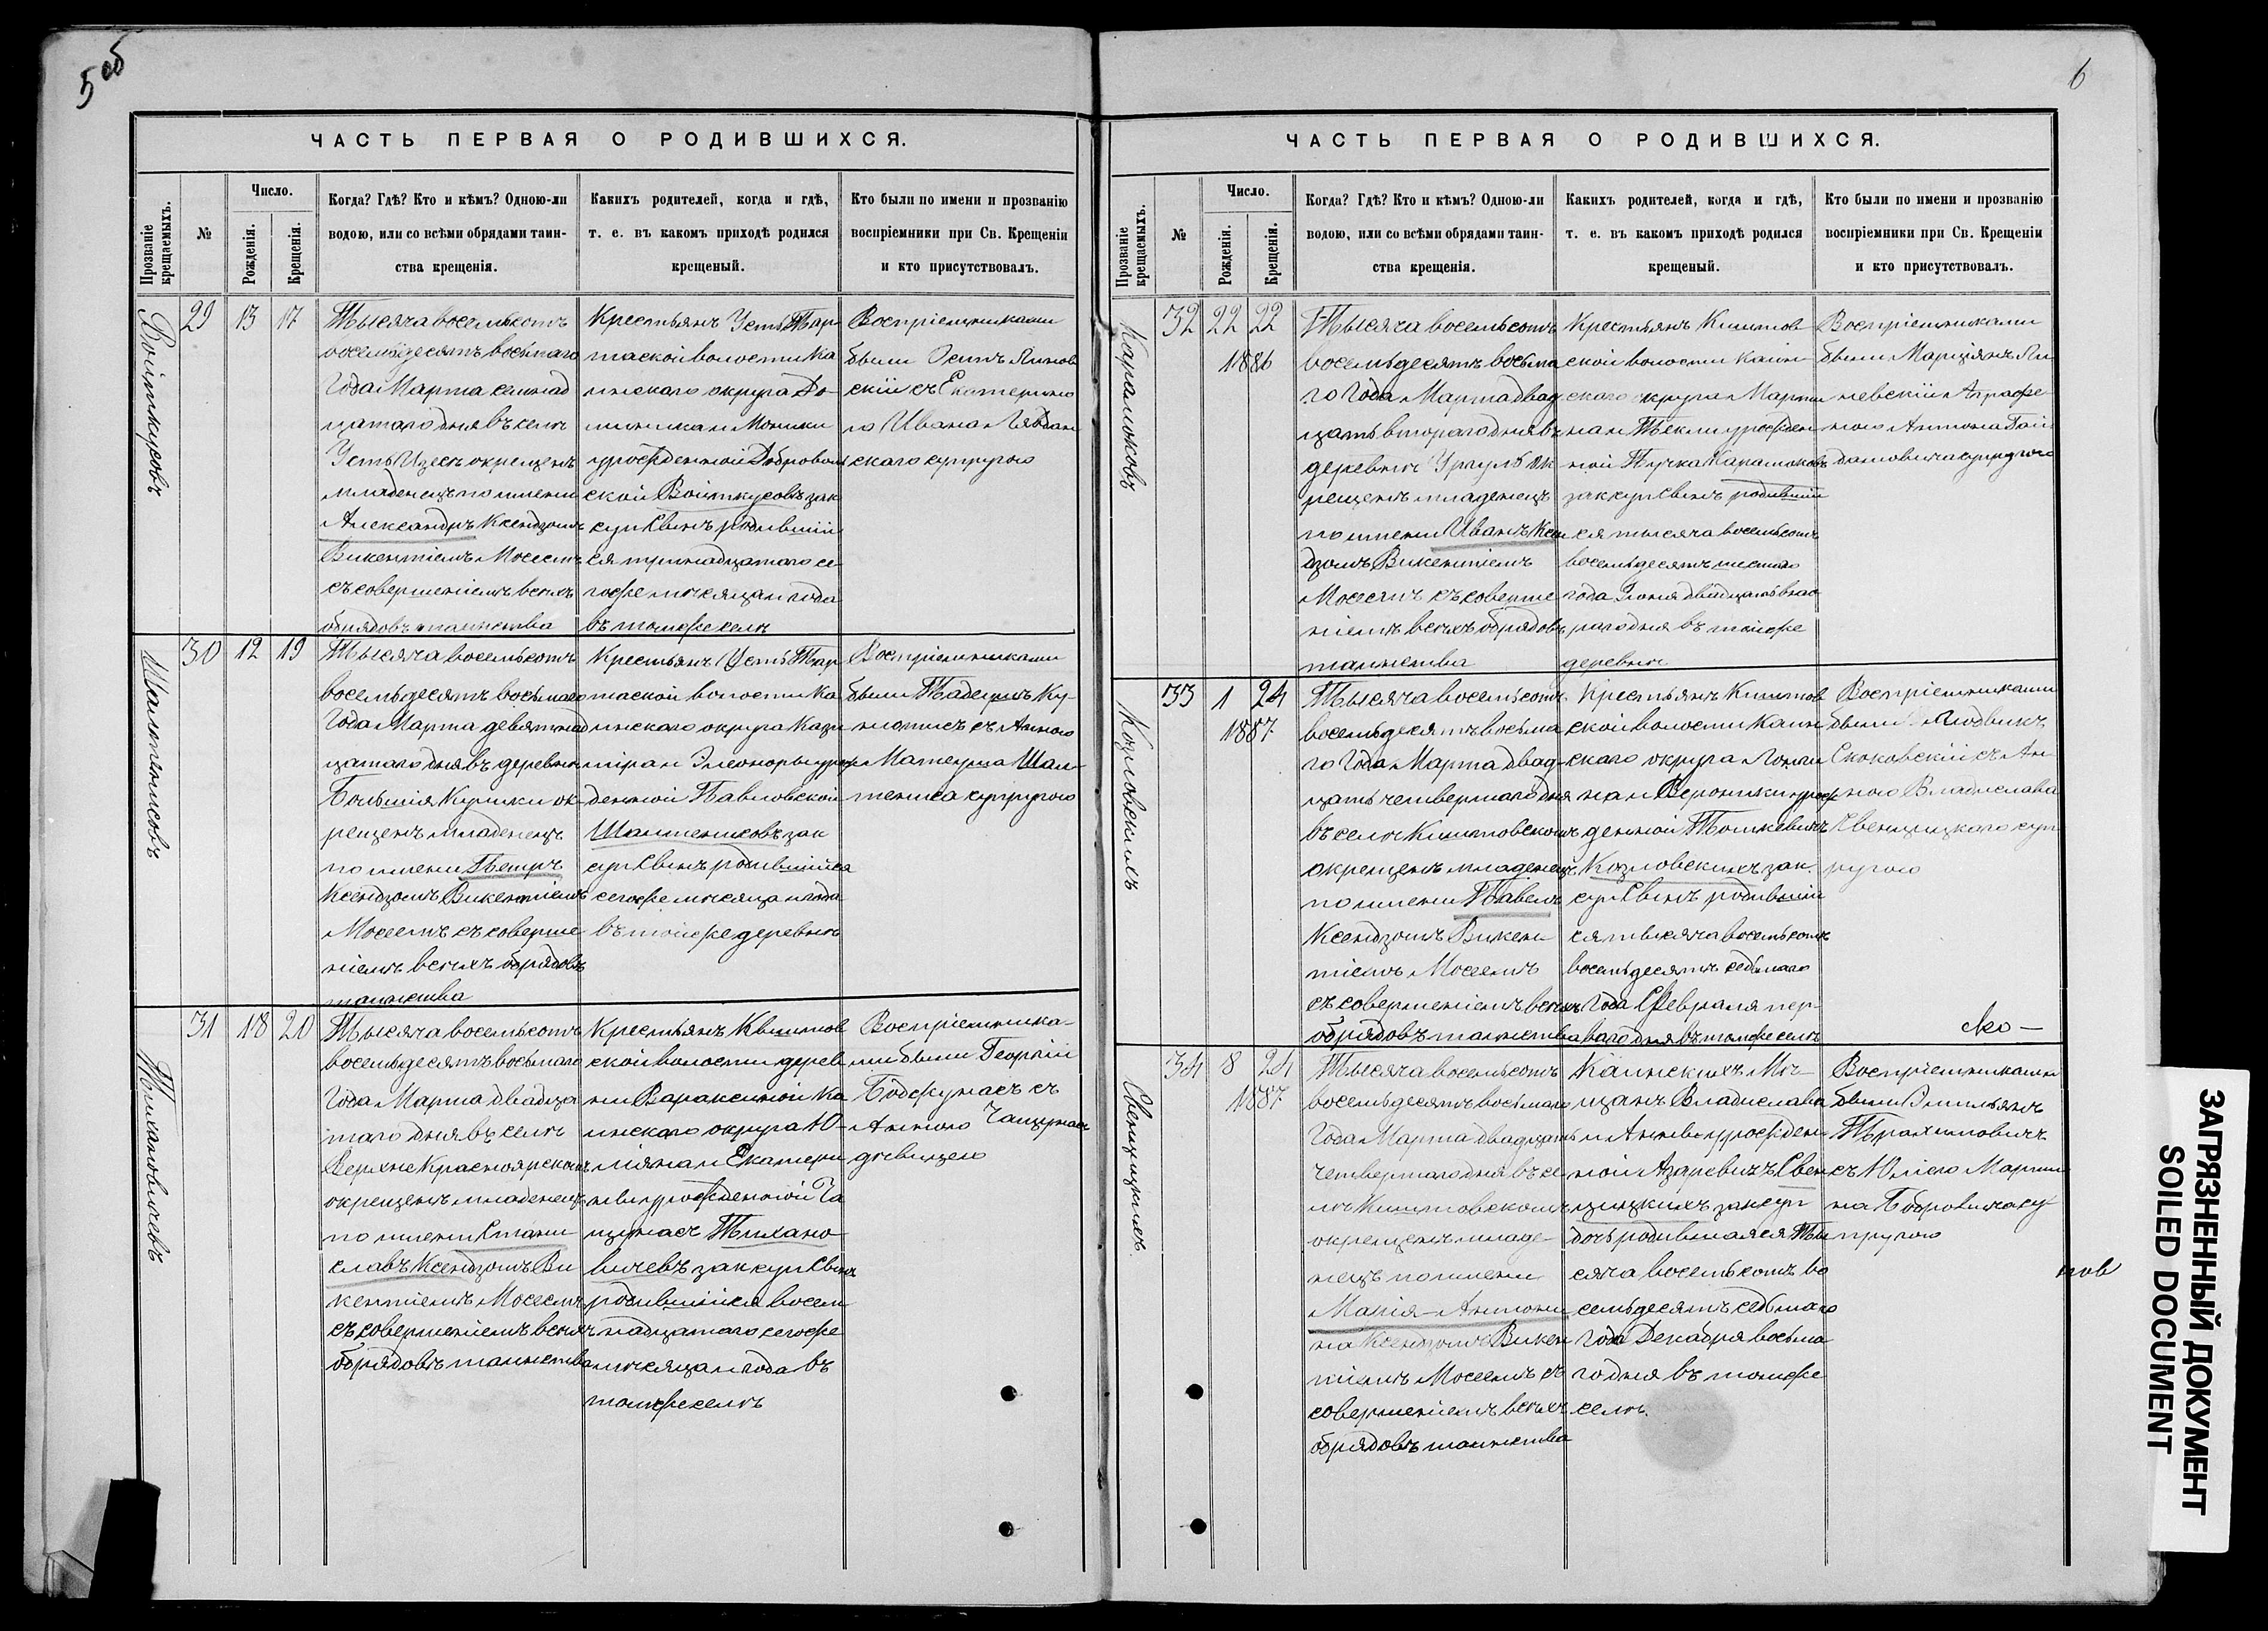 5 об
ЧАСТЬ ПЕРВАЯ О РОДИВШИХСЯ.
Прозваніе крещаемыхъ.
№
Число.
Рожденія.
Крещенія.
Когда? Гдѣ? Кто и кѣмъ? Одною-ли
водою, или со всѣми обрядами таин-
ства крещенія.
Какихъ родителей, когда и гдѣ,
т. е. въ какомъ приходѣ родился
крещеный.
Кто были по имени и прозванію
воспріемники при Св. Крещеніи
и кто присутствовалъ.
Войткусовъ
29 13 17
Тысяча восемьсотъ
восемьдесятъ восьмаго
Года Марта семнад
цатаго дня въ селѣ
Усть Изесъ окрещенъ
младенецъ по имени
Александръ Ксендзомъ
Викентіемъ Мосеемъ
съ совершеніемъ всѣхъ
обрядовъ таинства
Крестьянъ Усть Тар
таской волости Ка
инскаго округа До-
миника и Моники
урожденной Добровол
ской Войткусовъ зак
суп Сынъ родившій
ся тринадцатаго се
гоже мѣсяца и года
въ томже селѣ
Воспріемниками
были Осипъ Янов
скій съ Екатерино
ю Ивана
скаго супругою
Шалтенисовъ
30 12 19
Тысяча восемьсотъ
восемьдесятъ восьмаго
Года Марта девятнад
цатаго дня въ деревнѣ
Большія Куликъ ок-
рещенъ младенецъ
по имени Петръ
Ксендзомъ Викентіемъ
Мосеемъ съ соверше
ніемъ всѣхъ обрядовъ
таинства
Крестьянъ Усть Тар
таской волости Ка
инскаго округа Кази
міра и Элеоноры урож
денной Павловской
Шалтенисовъ зак
суп Сынъ родившійся
сегоже мѣсяца и года
въ тойже деревнѣ
Воспріемниками
были Тадеушъ Ку-
нотисъ съ Анною
Матеуша Шал-
тениса супругою
Тихановичевъ
31 18 20
Тысяча восемьсотъ
восемьдесятъ восьмаго
Года Марта двадца
таго дня въ селѣ
Верхне Красноярскомъ
окрещенъ младенецъ
по имени Стани
славъ Ксендзомъ Ви
кентіемъ Мосеемъ
съ совершеніемъ всѣхъ
обрядовъ таинства
Крестьянъ Кыштов
ской волости дерев
ни Вараксиной Ка
инскаго округа Ю-
ліяна и Екатери
ны урожденной Ча
щунасъ Тихано
вичевъ зак суп Сынъ
родившійся восем
надцатаго сегоже
мѣсяца и года въ
томже селѣ
Воспріемника-
ми были Георгій
Бодзкунасъ съ
Анною Чащунасъ
дѣвицею
6
ЧАСТЬ ПЕРВАЯ О РОДИВШИХСЯ.
Прозваніе крещаемыхъ.
№
Число.
Рожденія.
Крещенія.
Когда? Гдѣ? Кто и кѣмъ? Одною-ли
водою, или со всѣми обрядами таин-
ства крещенія.
Какихъ родителей, когда и гдѣ,
т. е. въ какомъ приходѣ родился
крещеный.
Кто были по имени и прозванію
воспріемники при Св. Крещеніи
и кто присутствовалъ.
Карамоковъ
32 22 22
1886
Тысяча восемьсотъ
восемьдесятъ восьма
го Года Марта двад
цать втораго дня въ
деревнѣ Ургуль ок
рещенъ младенецъ
по имени Иванъ Ксен
дзомъ Викентіемъ
Мосеемъ съ соверше
ніемъ всѣхъ обрядовъ
таинства
Крестьянъ Киштов
ской волости Каин-
скаго округа Марти
на и Теклы урожден
ной Пучка Карамоковъ
зак суп Сынъ родившій
ся тысяча восемьсотъ
восемьдесятъ шестаго
года Іюня двадцать вто
раго дня въ тойже
деревнѣ
Воспріемниками
были Марціянъ Яг
невскій Аграфе
ною Антона Гай
дамовича супругою
Козловскихъ
33 1 24
1887
Тысяча восемьсотъ
восемьдесятъ восьма
го Года Марта двад-
цать четвертаго дня
въ селѣ Киштовскомъ
окрещенъ младенецъ
по имени Павелъ
Ксендзомъ Викен
тіемъ Мосеемъ
съ совершеніемъ всѣхъ
обрядовъ таинства
Крестьянъ Киштов
ской волости Каин
скаго округа Логги
на и Вероники урож
денной Тошкевичъ
Козловскихъ зак.
суп Сынъ родившій
ся тысяча восемьсотъ
восемьдесятъ седьмаго
Года Февраля пер-
ваго дня въ томже селѣ
Воспріемниками
были Людвикъ
Скоковскій съ Ан
ною Владислава
Свенцицкаго суп
ругою
Свенцицкихъ.
34 8 24
1887
Тысяча восемьсотъ
восемьдесятъ восьмаго
Года Марта двадцать
четвертаго дня въ се
лѣ Киштовскомъ
окрещенъ младе-
нецъ по имени
Марія-Антони
на Ксендзомъ Викен
тіемъ Мосеемъ съ
совершеніемъ всѣхъ
обрядовъ таинства
Каинскихъ Мѣ-
щанъ Владислава
и Анны урожден-
ной Азаревичъ Свен
цицкихъ зак суп
дочь родившаяся Ты
сяча восемьсотъ во
семьдесятъ седьмаго
Года Декабря восьма
го дня въ томже
селѣ.
Воспріемниками
были Эмильянъ
Трахимовичъ
съ Юліею Марти
на Бобровича су
пругою
ЗАГРЯЗНЕННЫЙ ДОКУМЕНТ
SOILED DOCUMENT